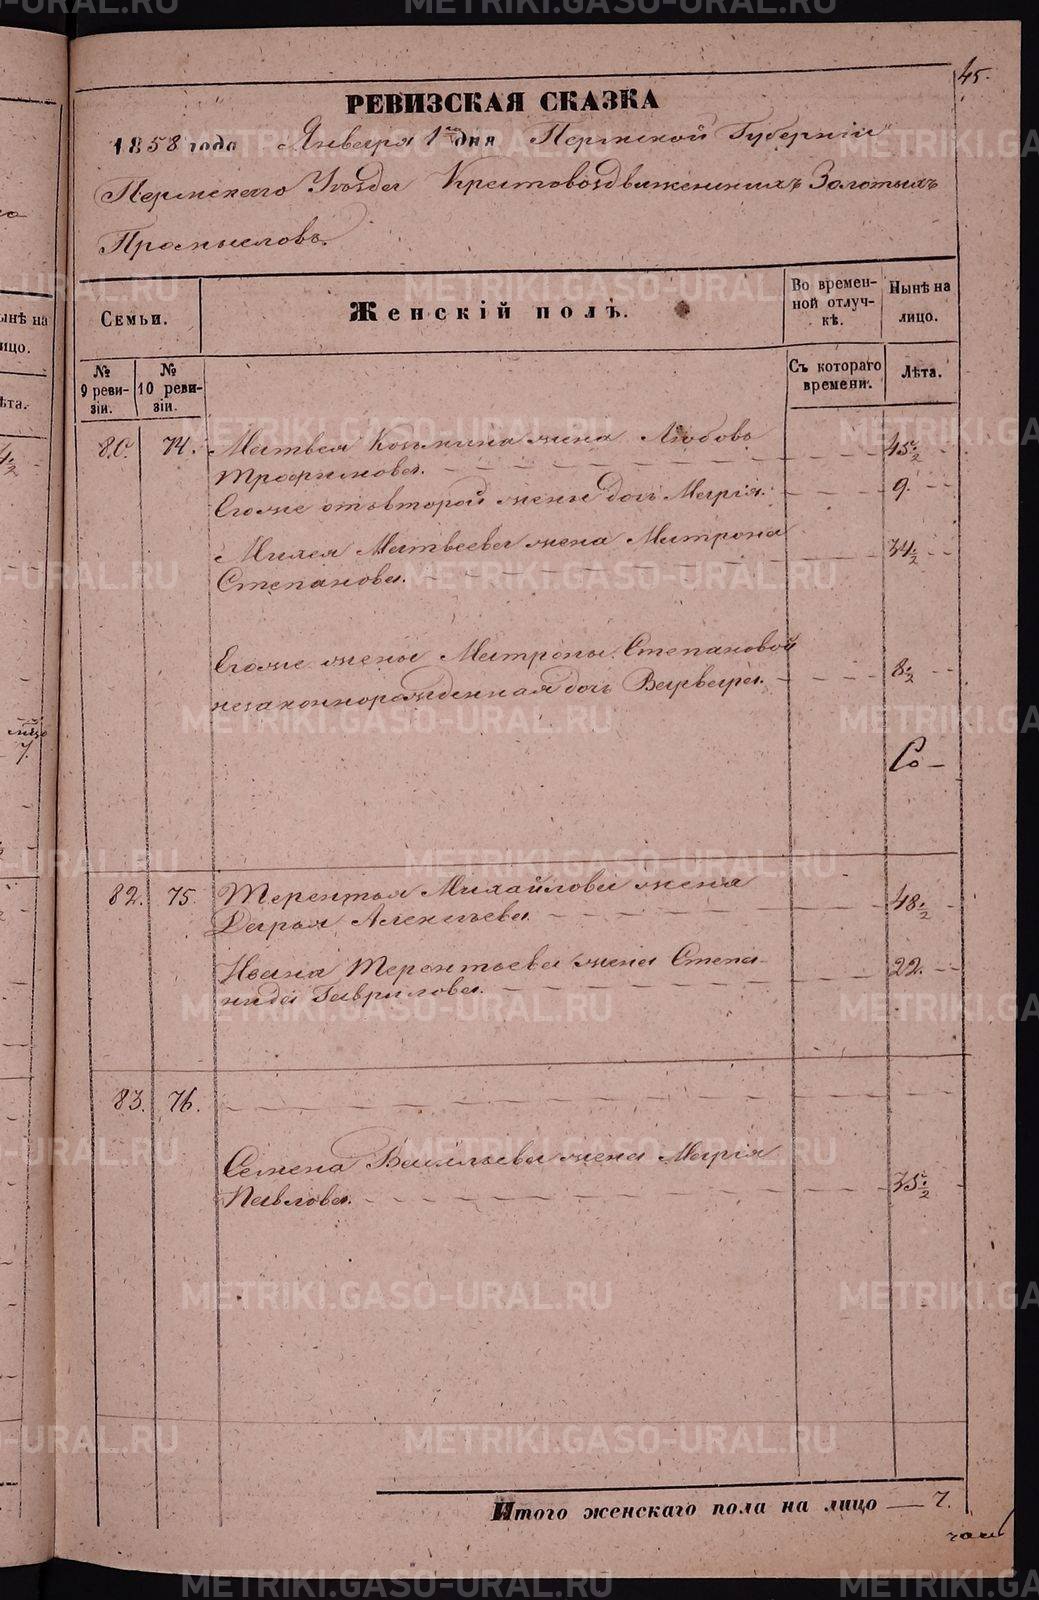 45.
РЕВИЗСКАЯ СКАЗКА
1858 года Января 1го дня Пермской Губерніи
Пермскаго Уѣзда Крестовоздвиженскихъ Золотыхъ
Промысловъ.
Семьи.
Женскій полъ.
Во времен-
ной отлуч-
кѣ.
Нынѣ на
лицо.
№
9 реви-
зіи.
№
10 реви-
зіи.
Съ котораго
времени.
Лѣта.
80. 74. Матвея Козьмина жена Любовь 45 1/2
Трофимова.
Егоже отъ второй жены дочь Марія. 9.
Михея Матвеева жена Матрона 34 1/2
Степанова.
Егоже жены Матроны Степановой 8 1/2
незаконнорожденная дочь Варвара.
82. 75. Терентья Михайлова жена 48 1/2
Дарья Алексѣева
Ивана Терентьева жена Степа- 22.
нида Гаврилова.
83. 76.
Семена Васильева жена Марія 35 1/2
Павлова.
Итого женскаго пола на лицо — 7.
METRIKI.GASO-URAL.RU